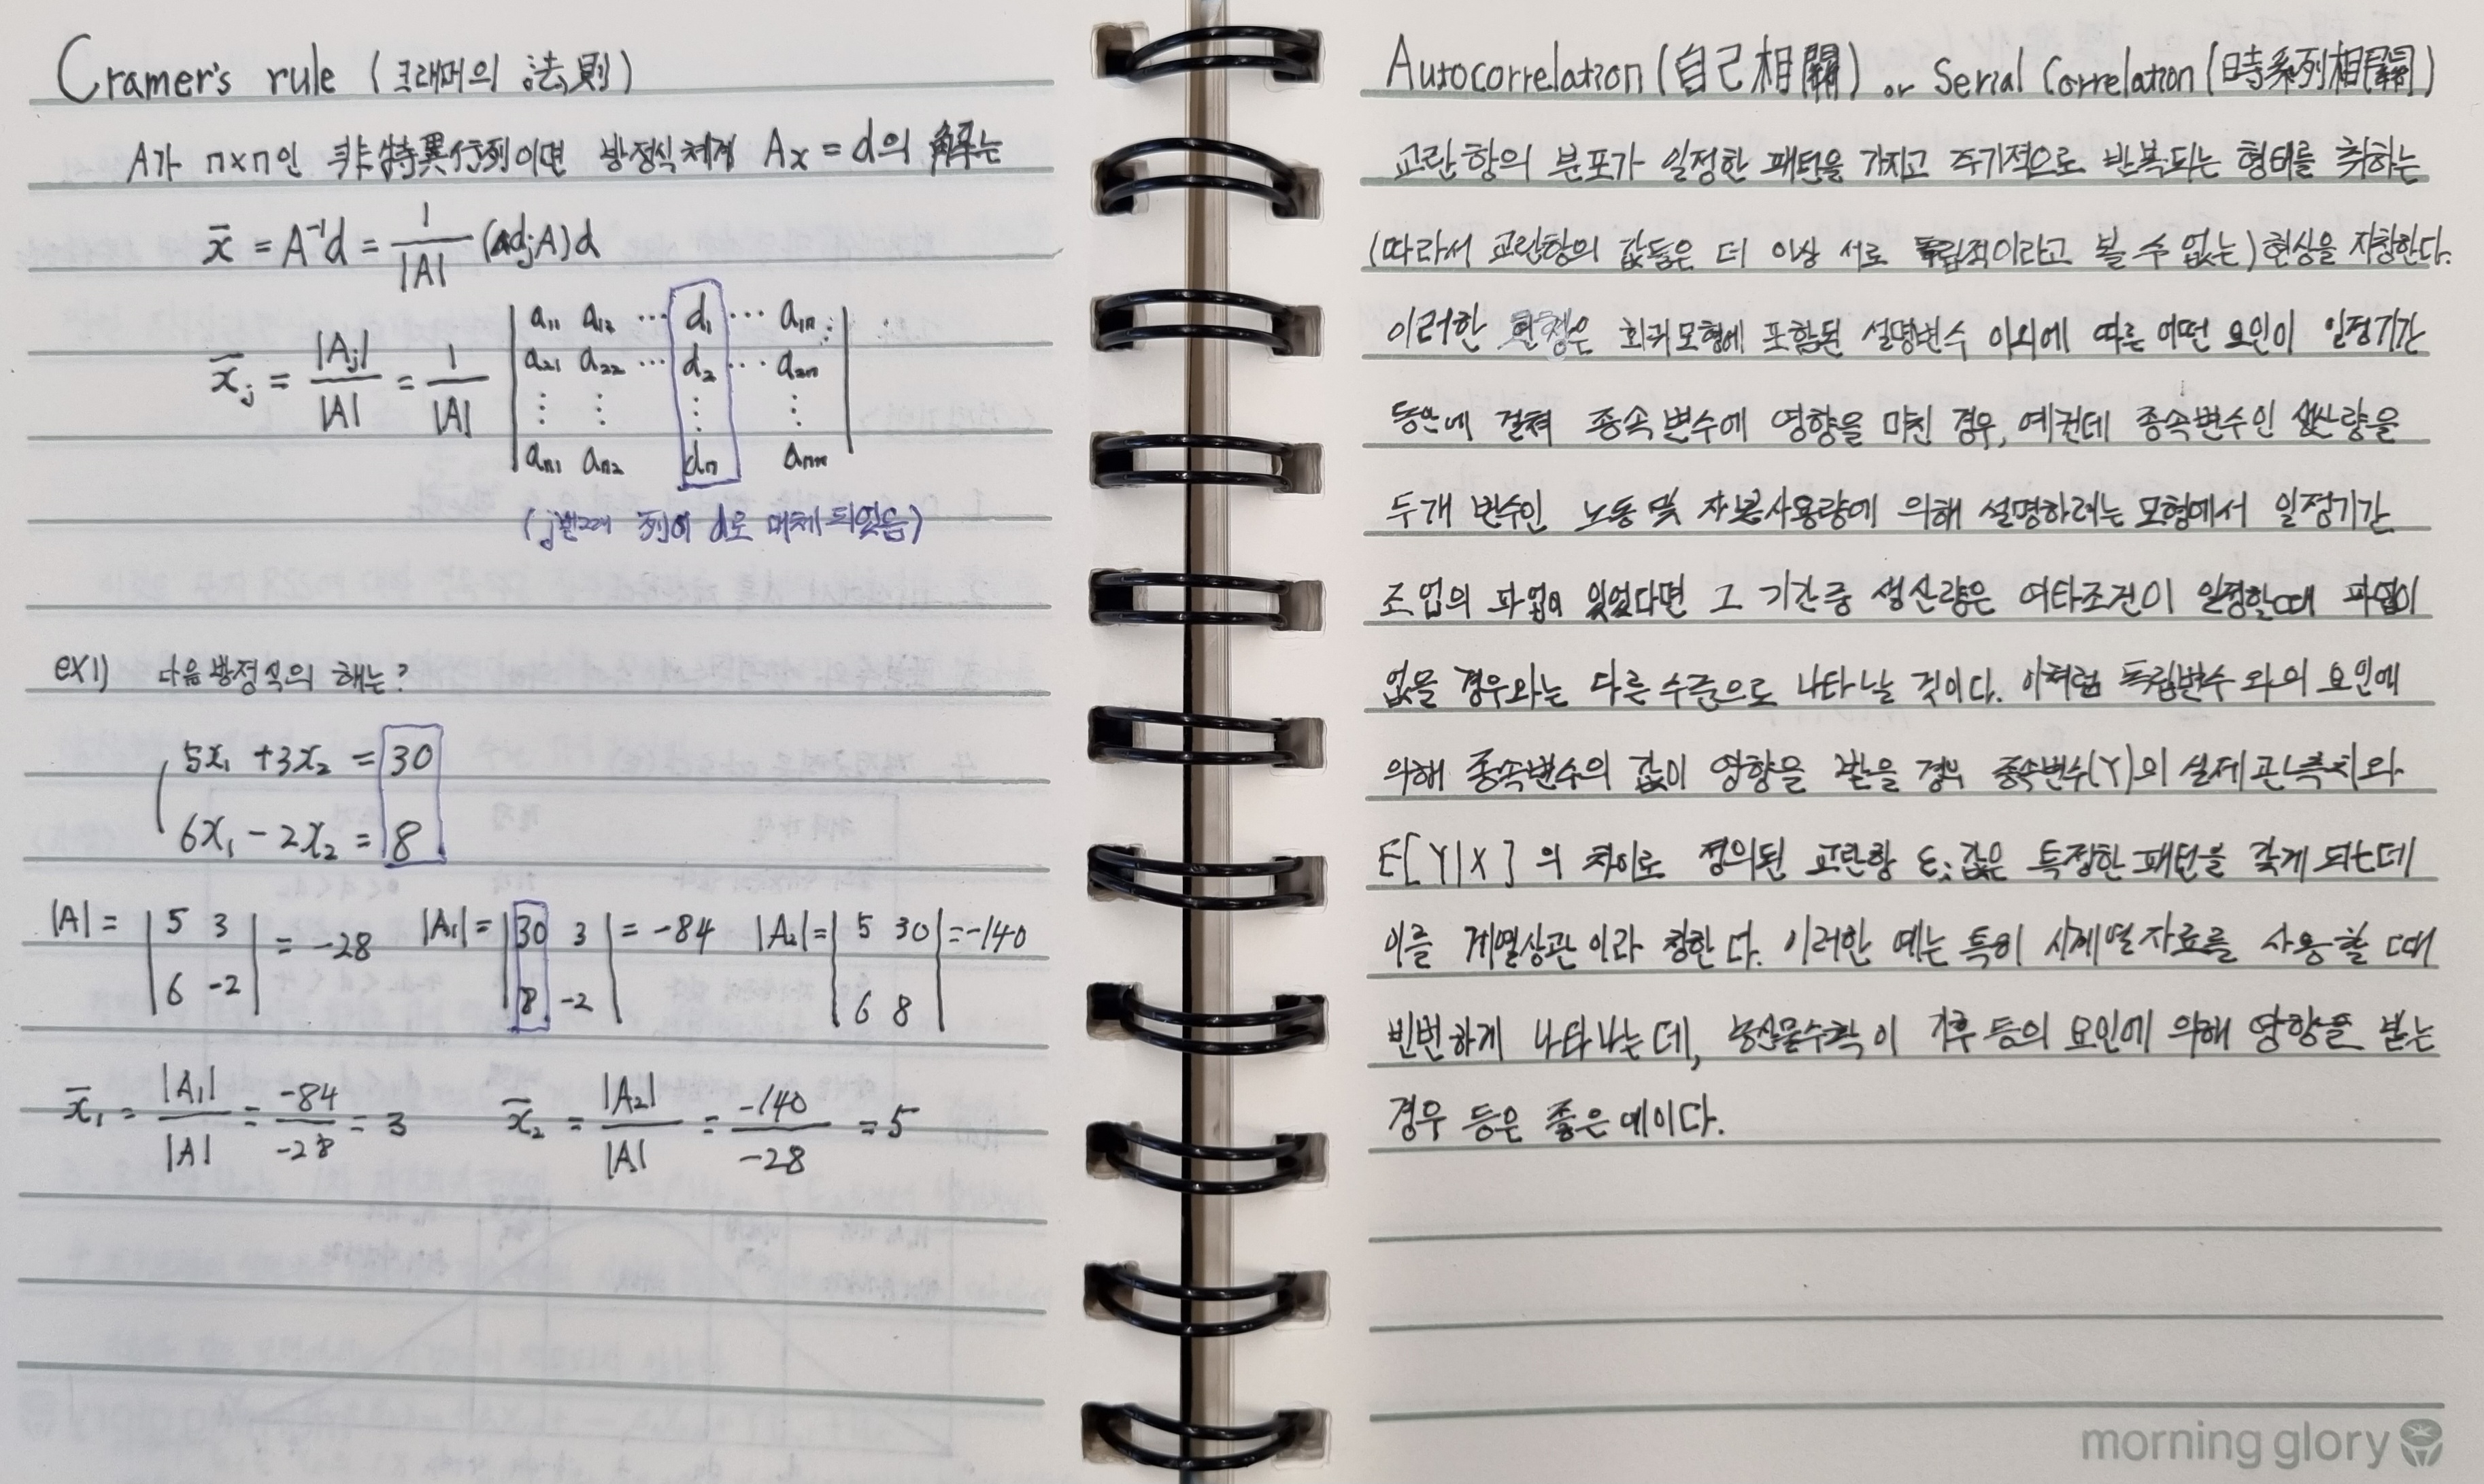 Cramer's rule (크래머의 法則)
A가 n×n인 非特異行列이면 방정식체계 Ax = d의 解는
x̄ = A⁻¹d = 1/|A| (adjA)d
x̄j = |Aj|/|A| = 1/|A| | a11 a12 ⋯ d1 ⋯ a1n |
a21 a22 ⋯ d2 ⋯ a2n
⋮ ⋮ ⋮ ⋮
an1 an2 dn ann
(j번째 列이 d로 대체 되었음)
ex1) 다음 방정식의 해는?
5x1 + 3x2 = 30
6x1 - 2x2 = 8
|A| = | 5 3 | = -28 |A1| = | 30 3 | = -84 |A2| = | 5 30 | = -140
6 -2 8 -2 6 8
x̄1 = |A1|/|A| = -84/-28 = 3 x̄2 = |A2|/|A| = -140/-28 = 5
Autocorrelation (自己相關) or Serial Correlation (時系列相關)
교란항의 분포가 일정한 패턴을 가지고 주기적으로 반복되는 형태를 취하는
(따라서 교란항의 값들은 더 이상 서로 독립적이라고 볼 수 없는) 현상을 지칭한다.
이러한 현상은 회귀모형에 포함된 설명변수 이외에 다른 어떤 요인이 일정기간
동안에 걸쳐 종속변수에 영향을 미친 경우, 예컨데 종속변수인 생산량을
두개 변수인 노동 및 자본사용량에 의해 설명하려는 모형에서 일정기간
조업의 파업이 있었다면 그 기간중 생산량은 여타조건이 일정할때 파업이
없을 경우와는 다른 수준으로 나타날 것이다. 이처럼 독립변수 외의 요인에
의해 종속변수의 값이 영향을 받을 경우 종속변수(Y)의 실제관측치와
E[Y|X]의 차이로 정의된 교란항 εi값은 특정한 패턴을 갖게 되는데
이를 계열상관이라 칭한다. 이러한 예는 특히 시계열자료를 사용할 때
빈번하게 나타나는데, 농산물수확이 기후 등의 요인에 의해 영향을 받는
경우 등은 좋은 예이다.
morning glory